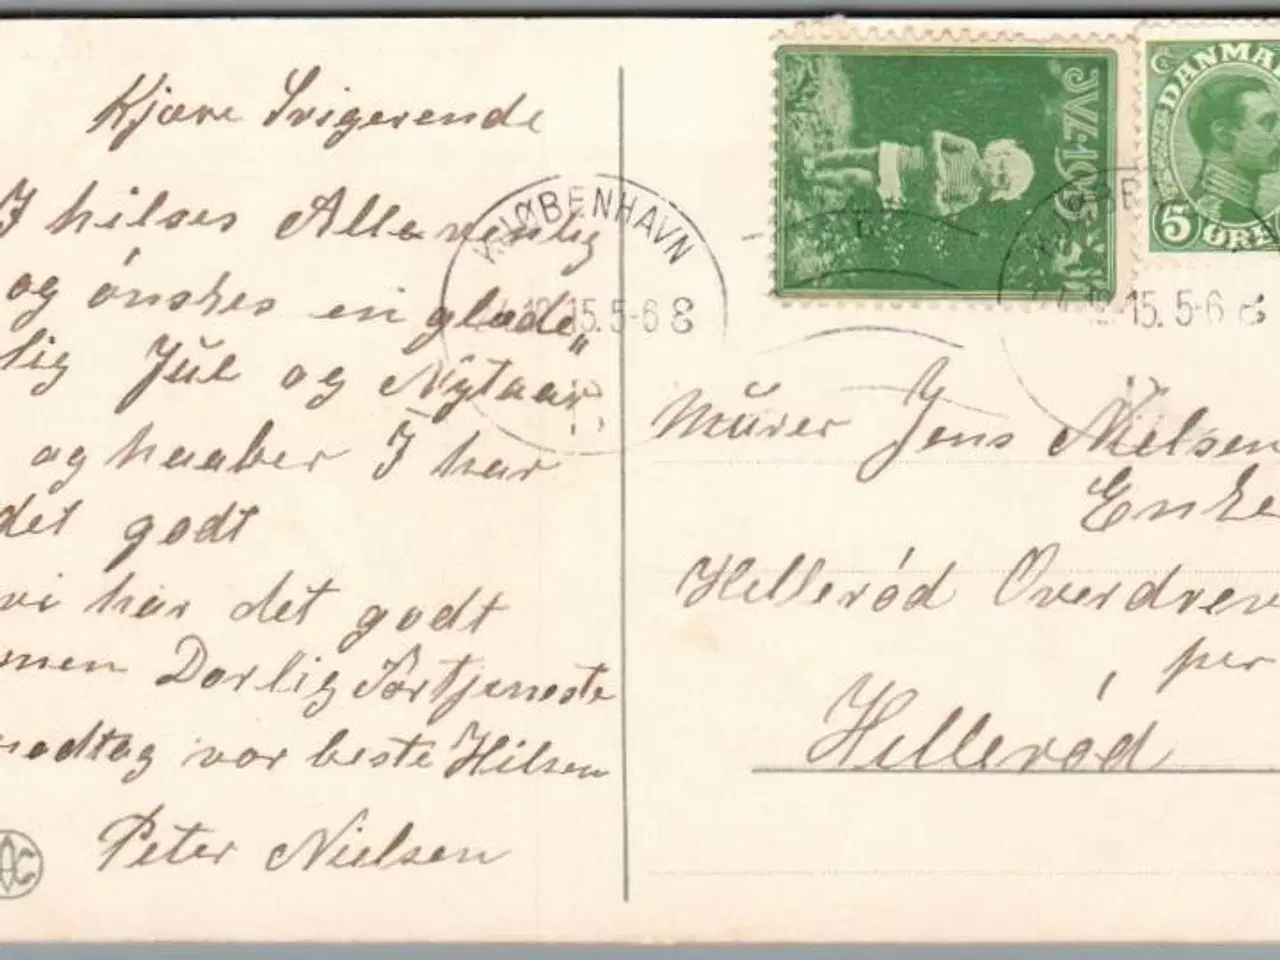 Kjære Svigerende
I hilses Alle venlig
og ønskes en glæde„
lig Jul og Nytaar
og haaber I har
det godt
vi har det godt
men Darlig Förtjeneste
modtag vor beste Hilsen
Peter Nielsen
KJØBENHAVN
12.15.5-6 E
JUL 1915
DANMARK
5 ØRE
15. 5-6 E
Murer Jens Nielsen
Enke
Hillerød Overdrev
per
Hillerød